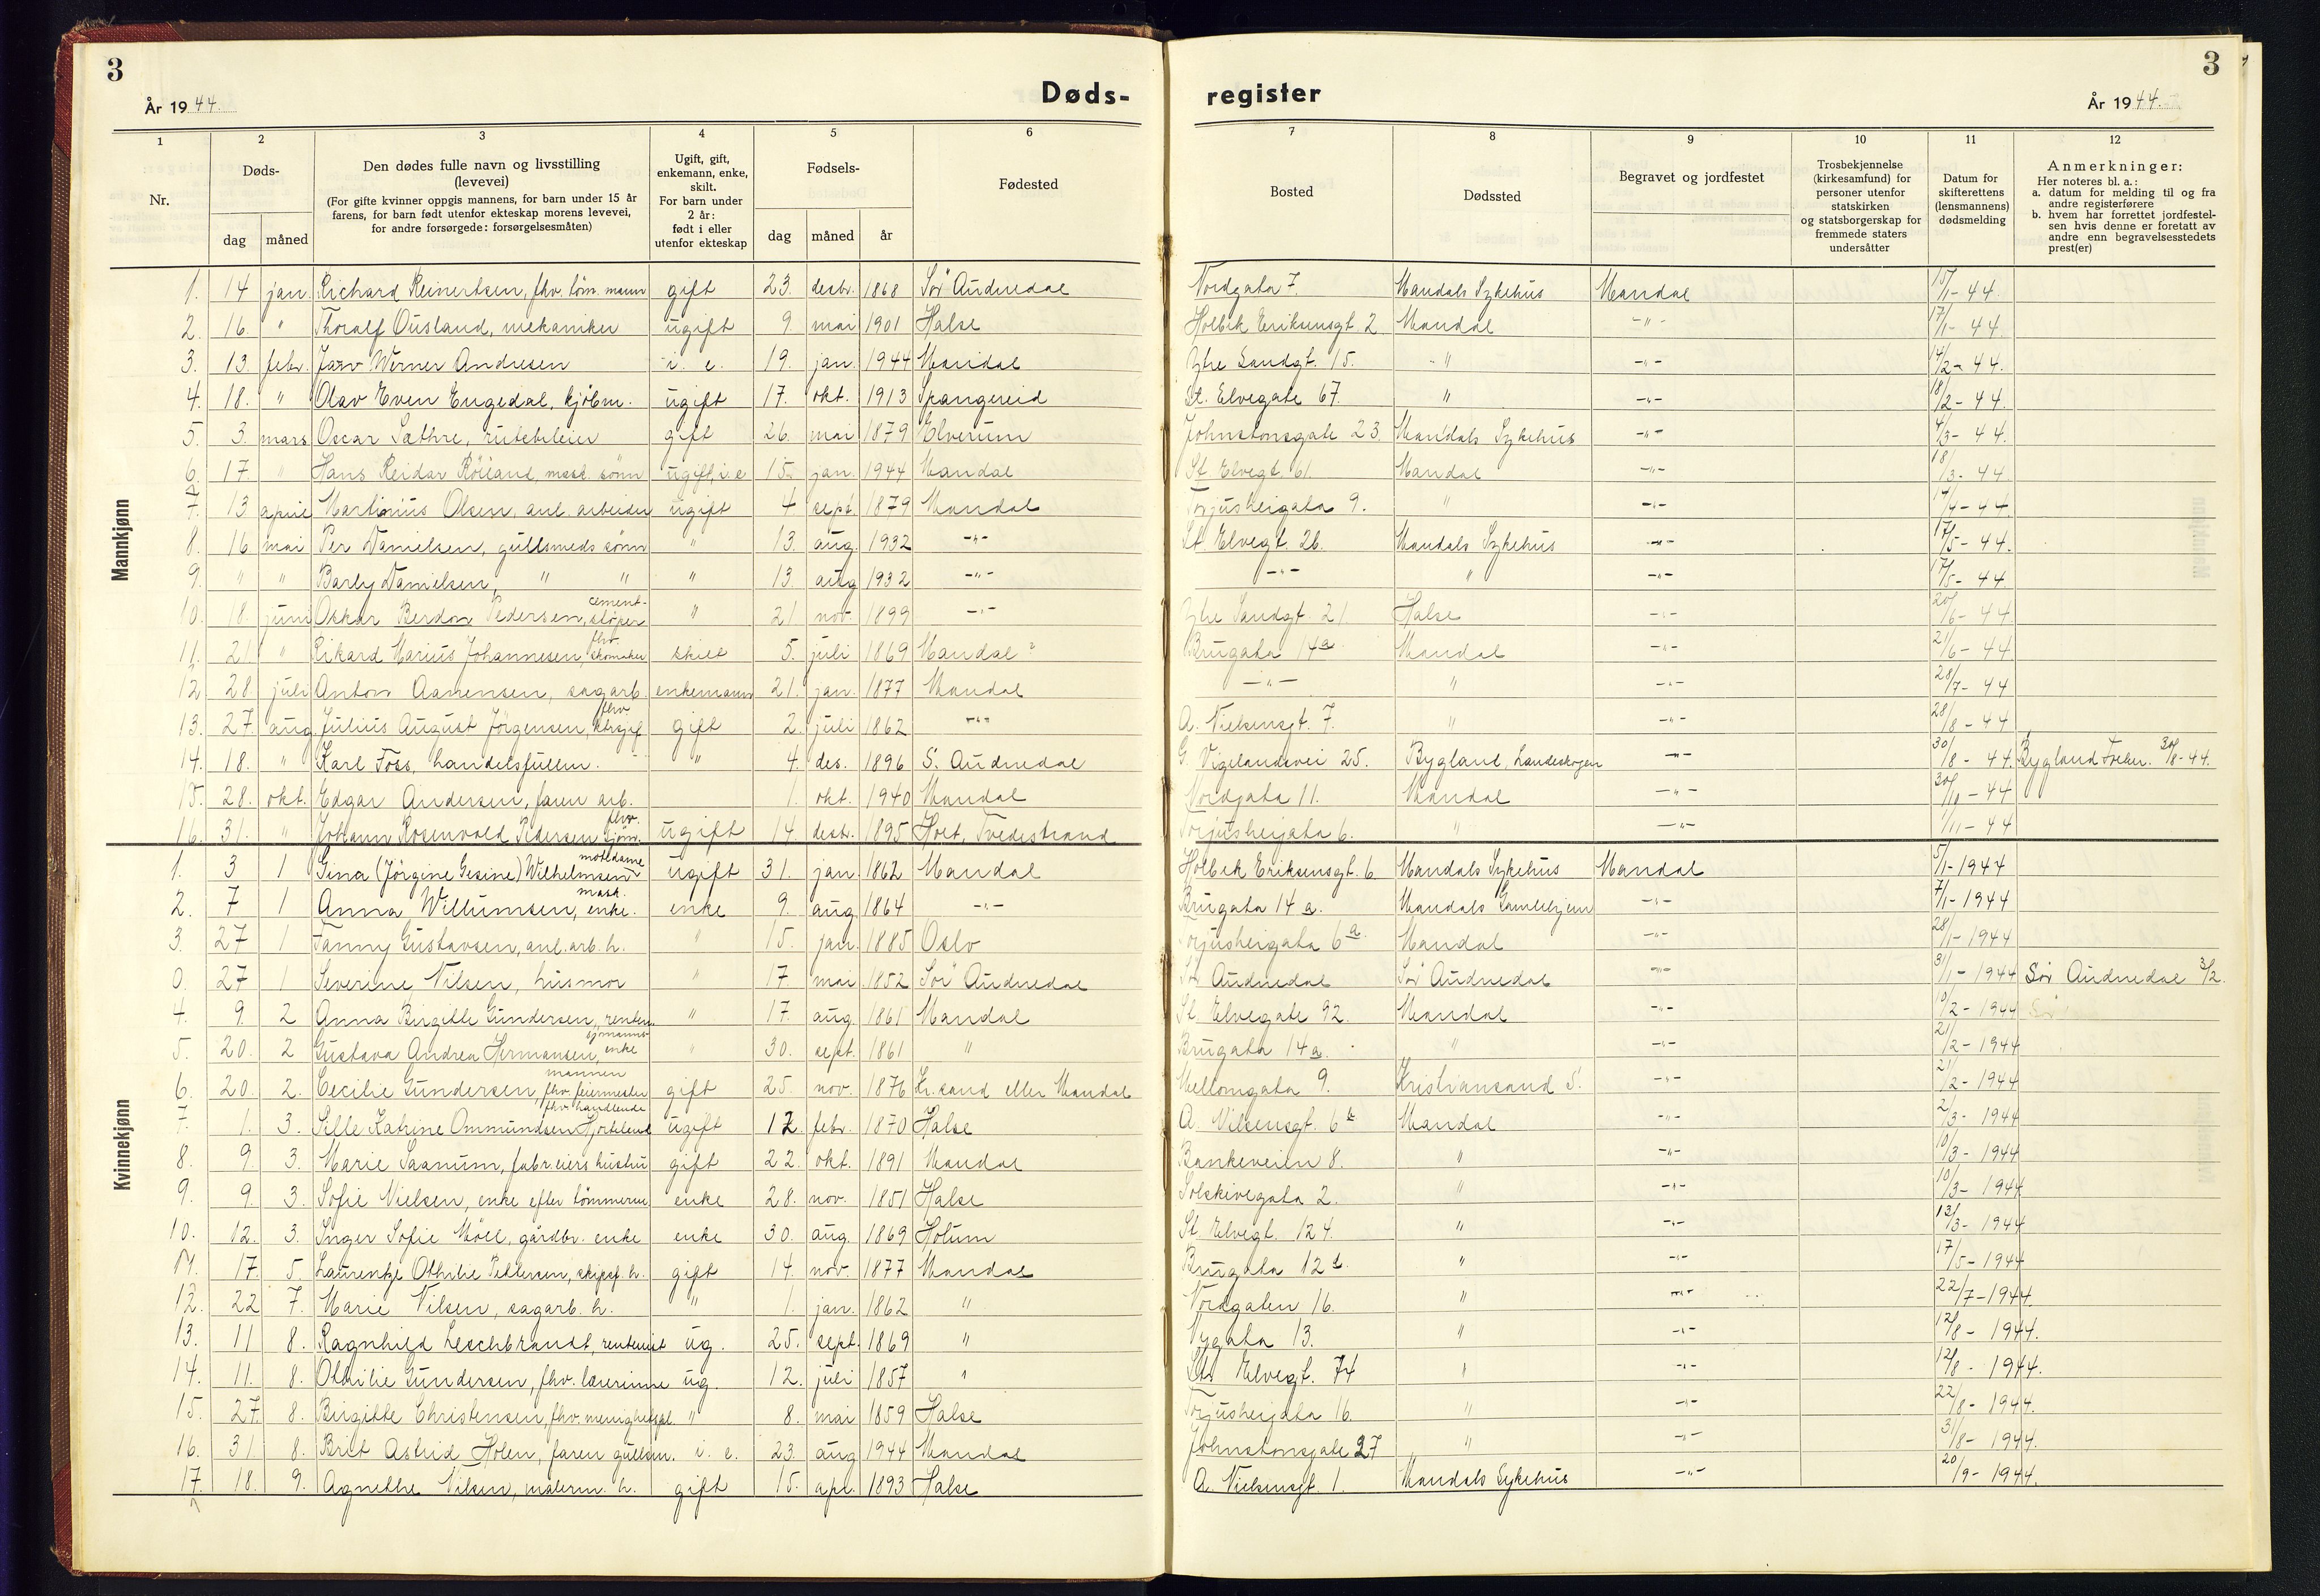 3
År 1944.
Døds-
1 2 3 4 5 6
Nr.
Døds-
dag måned
Den dødes fulle navn og livsstilling
(levevei)
(For gifte kvinner oppgis mannens, for barn under 15 år
farens, for barn født utenfor ekteskap morens levevei,
for andre forsørgede: forsørgelsesmåten)
Ugift, gift,
enkemann, enke,
skilt.
For barn under
2 år:
født i eller
utenfor ekteskap
Fødsels-
dag måned år
Fødested
register
3
År 1944.
7 8 9 10 11 12
Bosted
Dødssted
Begravet og jordfestet
Trosbekjennelse
(kirkesamfund) for
personer utenfor
statskirken
og statsborgerskap for
fremmede staters
undersåtter
Datum for
skifterettens
(lensmannens)
dødsmelding
Anmerkninger:
Her noteres bl. a.:
a. datum for melding til og fra
andre registerførere
b. hvem har forrettet jordfestel-
sen hvis denne er foretatt av
andre enn begravelsesstedets
prest(er)
Mannkjønn
1. 14 jan. Richard Reinertsen, fhv. töm. mann gift 23. desbr. 1868 Sör Audnedal Nordgata 7. Mandals Sykehus Mandal 15/1- 44.
2. 16. " Thoralf Ousland, mekaniker ugift 9. mai 1901 Halse Holbek Eriksensgt. 2 Mandal -"- 17/1- 44.
3. 13. febr. Werner Andresen i. e. 19. jan. 1944 Mandal Ytre Sandgt. 15. -"- -"- 14/2- 44.
4. 18. " Olav Even Engedal, kjöbm. ugift 17. okt. 1913 Spangereid St. Elvegate 67. " -"- 18/2- 44.
5. 3. mars Oscar Sæthre, rutebileier gift 26. mai 1879 Elverum Johnstonsgate 23. Mandals Sykehus -"- 4/3- 44.
6. 17. " Hans Reidar Röiland, mask. sönn ugift, i. e 15. jan. 1944 Mandal St. Elvegt. 61. Mandal -"- 18/3- 44.
7. 13 april Martinius Olsen, anl. arbeider ugift 4 sept. 1879 Mandal Torjusheigata 9. " -"- 17/4- 44
8. 16. mai Per Danielsen, gullsmeds sönn " 13. aug. 1932 -"- St. Elvegt. 26. Mandals Sykehus -"- 17/5- 44.
9. " " Barly Danielsen, " " " 13. aug 1932 -"- -"- " -"- 17/5- 44
10. 18. juni Oskar Berdon Pedersen, cement-stöper " 21 nov. 1899 -"- Ytre Sandgt 21. Halse -"- 20/6- 44
11. 21 " Rikard Marius Johannesen, fhv. skomaker skilt 5. juli 1869 Mandal ? Brugata 14a Mandal -"- 21/6- 44
12 28 juli Anton Aanensen, sagarb. enkemann 21. jan. 1877 Mandal -"- " -"- 28/7- 44
13. 27. aug. Julius August Jörgensen, fhv. gift 2. juli 1862 -"- A. Nielsensgt. 7. " -"- 28/8- 44
14. 18. " Karl Foss, handelsfullm. " 4. des. 1896 S. Audnedal G. Vigelandsvei 25. Bygland, Landeskogen -"- 30/8- 44. Bygland 30/8-44.
15. 28. okt. Edgar Andersen, faren arb. 1. okt. 1940 Mandal Nordgata 11. Mandal -"- 30/10- 44
16. 31. " Johann Rosenvold Pedersen fhv. sjöm. ugift 14. desbr. 1895 Holt, Tvedestrand Torjusheigata 6. " -"- 1/11- 44
Kvinnekjønn
1. 3 1 Gina (Jörgine Gesine) Wilhelmsen motedame ugift 31. jan. 1862 Mandal Holbek Eriksensgt. 6. Mandals Sykehus Mandal 5/1- 1944
2. 7 1 Anna Willumsen, mask. enke. enke 9. aug. 1864 -"- Brugata 14 a. Mandals Gamlehjem -"- 7/1- 1944
3. 27 1 Fanny Gustavsen, anl. arb. h. " 15. jan. 1885 Oslo Torjusheigata 6a. Mandal -"- 28/1- 1944
0. 27 1 Severine Nilsen, husmor " 17. mai 1852 Sör Audnedal Sör Audnedal Sör Audnedal -"- 31/1- 1944 Sör Audnedal 3/2.
4. 9. 2 Anna Birgitte Gundersen, renten. " 17. aug. 1861 Mandal St. Elvegate 92. Mandal -"- 10/2- 1944
5. 20. 2 Gustava Andrea Hermansen, sjömanns-enke " 30. sept. 1861 " Brugata 14a. " -"- 21/2- 1944
6. 20. 2. Cecilie Gundersen, mannen fhv. feiermester gift 25. nov. 1876 Kr. sand eller Mandal Mellomgata 9. Kristiansand S. -"- 21/2- 1944
7. 1. 3. Sille Katrine Ommundsen Hjorteland fhv. handlende ugift 12. febr. 1870 Halse A. Nilsensgt. 6b Mandal -"- 2/3- 1944
8. 9. 3. Marie Saanum, fabr. eiers hustru gift 22. okt. 1891 Mandal Bankeveien 8. " -"- 10/3- 1944
9. 9. 3. Sofie Nielsen, enke efter tömmerm. enke 28. nov. 1851 Halse Solskivegata 2. " -"- 10/3- 1944
10. 12. 3. Inger Sofie Möll, gårdbr. enke enke 30. aug. 1869 Holum St. Elvegt. 124. " -"- 13/3- 1944
11. 17. 5. Laurentze Othilie Pettersen, skipsf. h. gift 14. nov. 1877 Mandal Brugata 12 " -"- 17/5- 1944
12. 22 7. Marie Nilsen, sagarb. h. " 1. jan. 1862 " Nordgaten 16. " -"- 22/7-1944.
13. 11 8. Ragnhild Leschbrandt, rentenist ug. 25. sept. 1869 " Nygata 13. " -"- 12/8- 1944.
14. 11. 8. Othilie Gundersen, fhv. lærerinne ug. 12. juli 1857 " St. Elvegt. 74 " -"- 12/8- 1944.
15. 27. 8. Birgitte Christensen, fhv. menighetspl. " 8. mai 1859 Halse Torjusheigata 16. " -"- 22/8- 1944.
16. 31. 8. Brit Astrid Holen, faren gullsm. i. e. 23. aug 1944 Mandal Johnstonsgate 27 " -"- 31/8- 1944.
17. 18. 9. Agnethe Nilsen, malerm. h. gift 15. apl. 1893 Halse A. Nielsensgt. 1. Mandals Sykehus -"- 20/9- 1944.